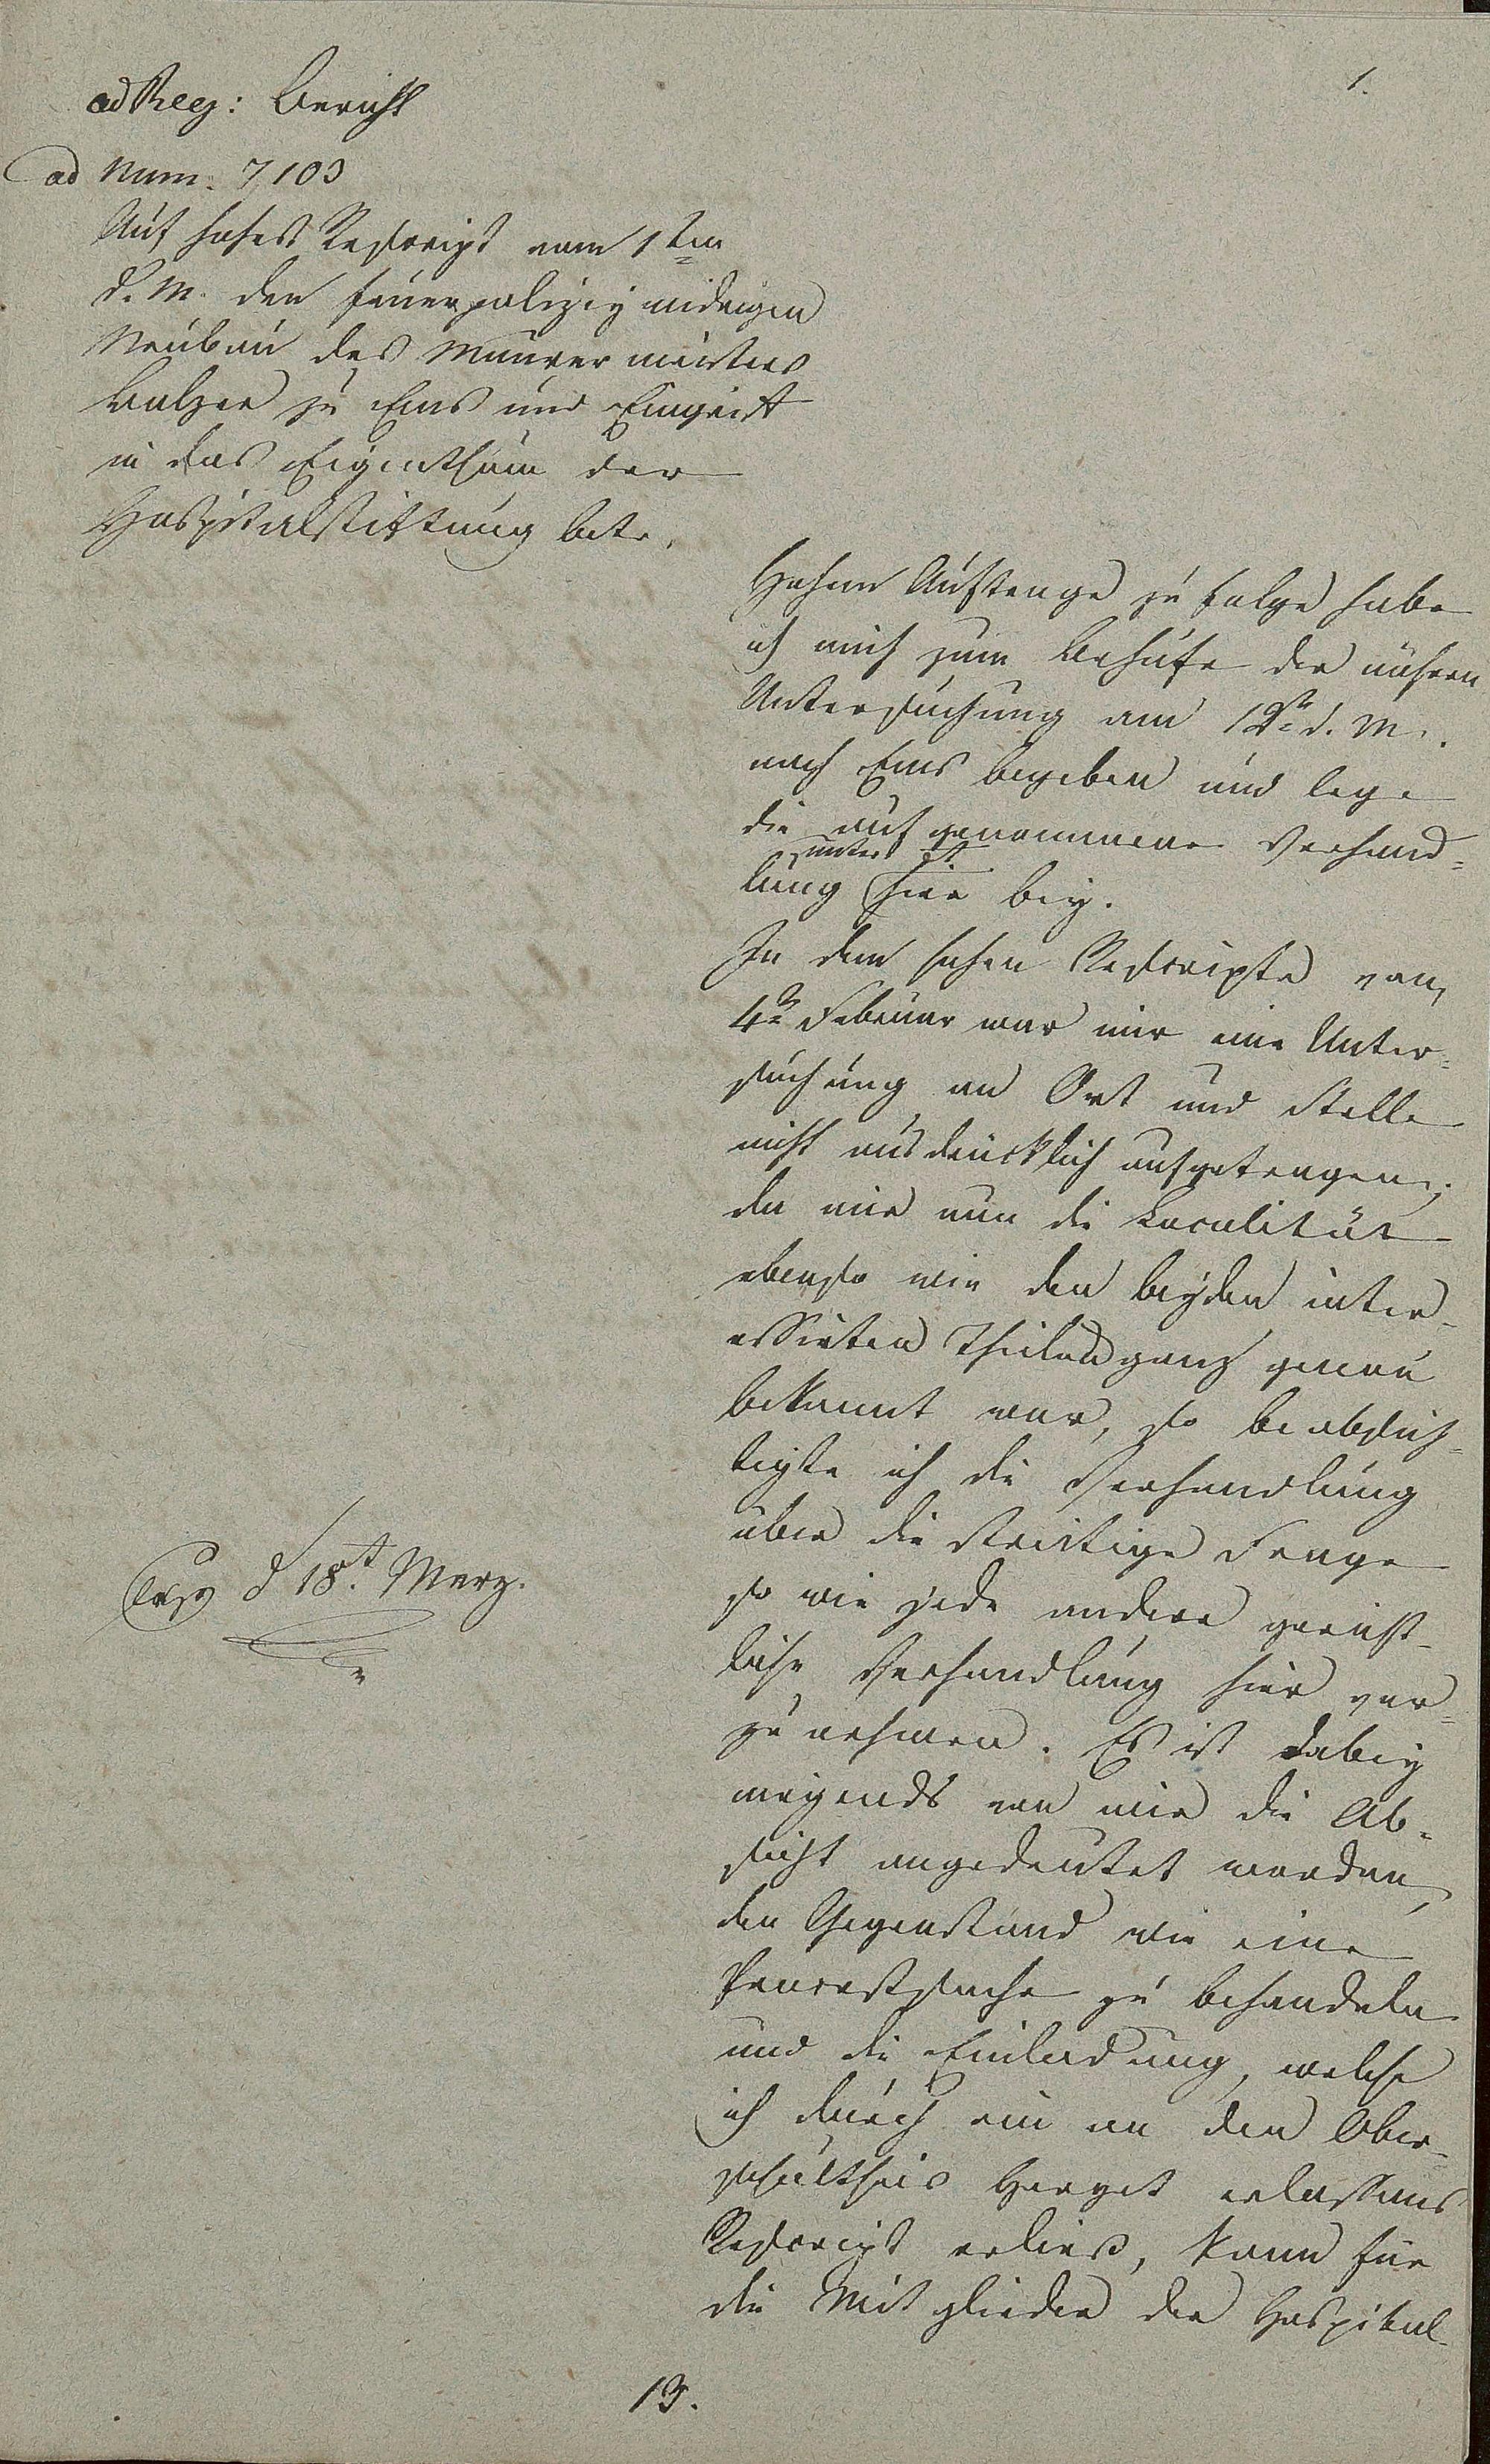 1.
ad Reg: Bericht
ad Num. 7103
Auf hohes Rescript vom 1ten
d. M. den feuerpolizeywidrigen
Neubau des Maurermeisters
Balzer zu Ems und Eingriff
in das Eigenthum der
Hospitalstiftung betr.
Hohem Auftrage zu folge habe
ich mich zum Behufe der nähern
Untersuchung am 12t d. M.
nach Ems begeben und lege
die aufgenommene Verhand-
lung unter hier bey.
In dem hohen Rescripte vom
4n Februar war mir eine Unter-
suchung an Ort und Stelle
nicht ausdrücklich aufgetragen;
da mir nun die Localität
ebenso wie den beyden inter-
essirten Theilen ganz genau
bekannt war, so beabsich-
tigte ich die Verhandlung
über die streitige Frage
so wie jede andere gericht-
liche Verhandlung hier vor-
zunehmen. Es ist dabey
nirgends von mir die Ab-
sicht angedeutet worden,
den Gegenstand wie eine
Processsache zu behandeln
und die Einladung, welche
ich durch ein an den Ober-
schultheis Herget erlassens
Rescript erließ, kann für
die Mitglieder der Hospital-
d 18t Merz.
13.